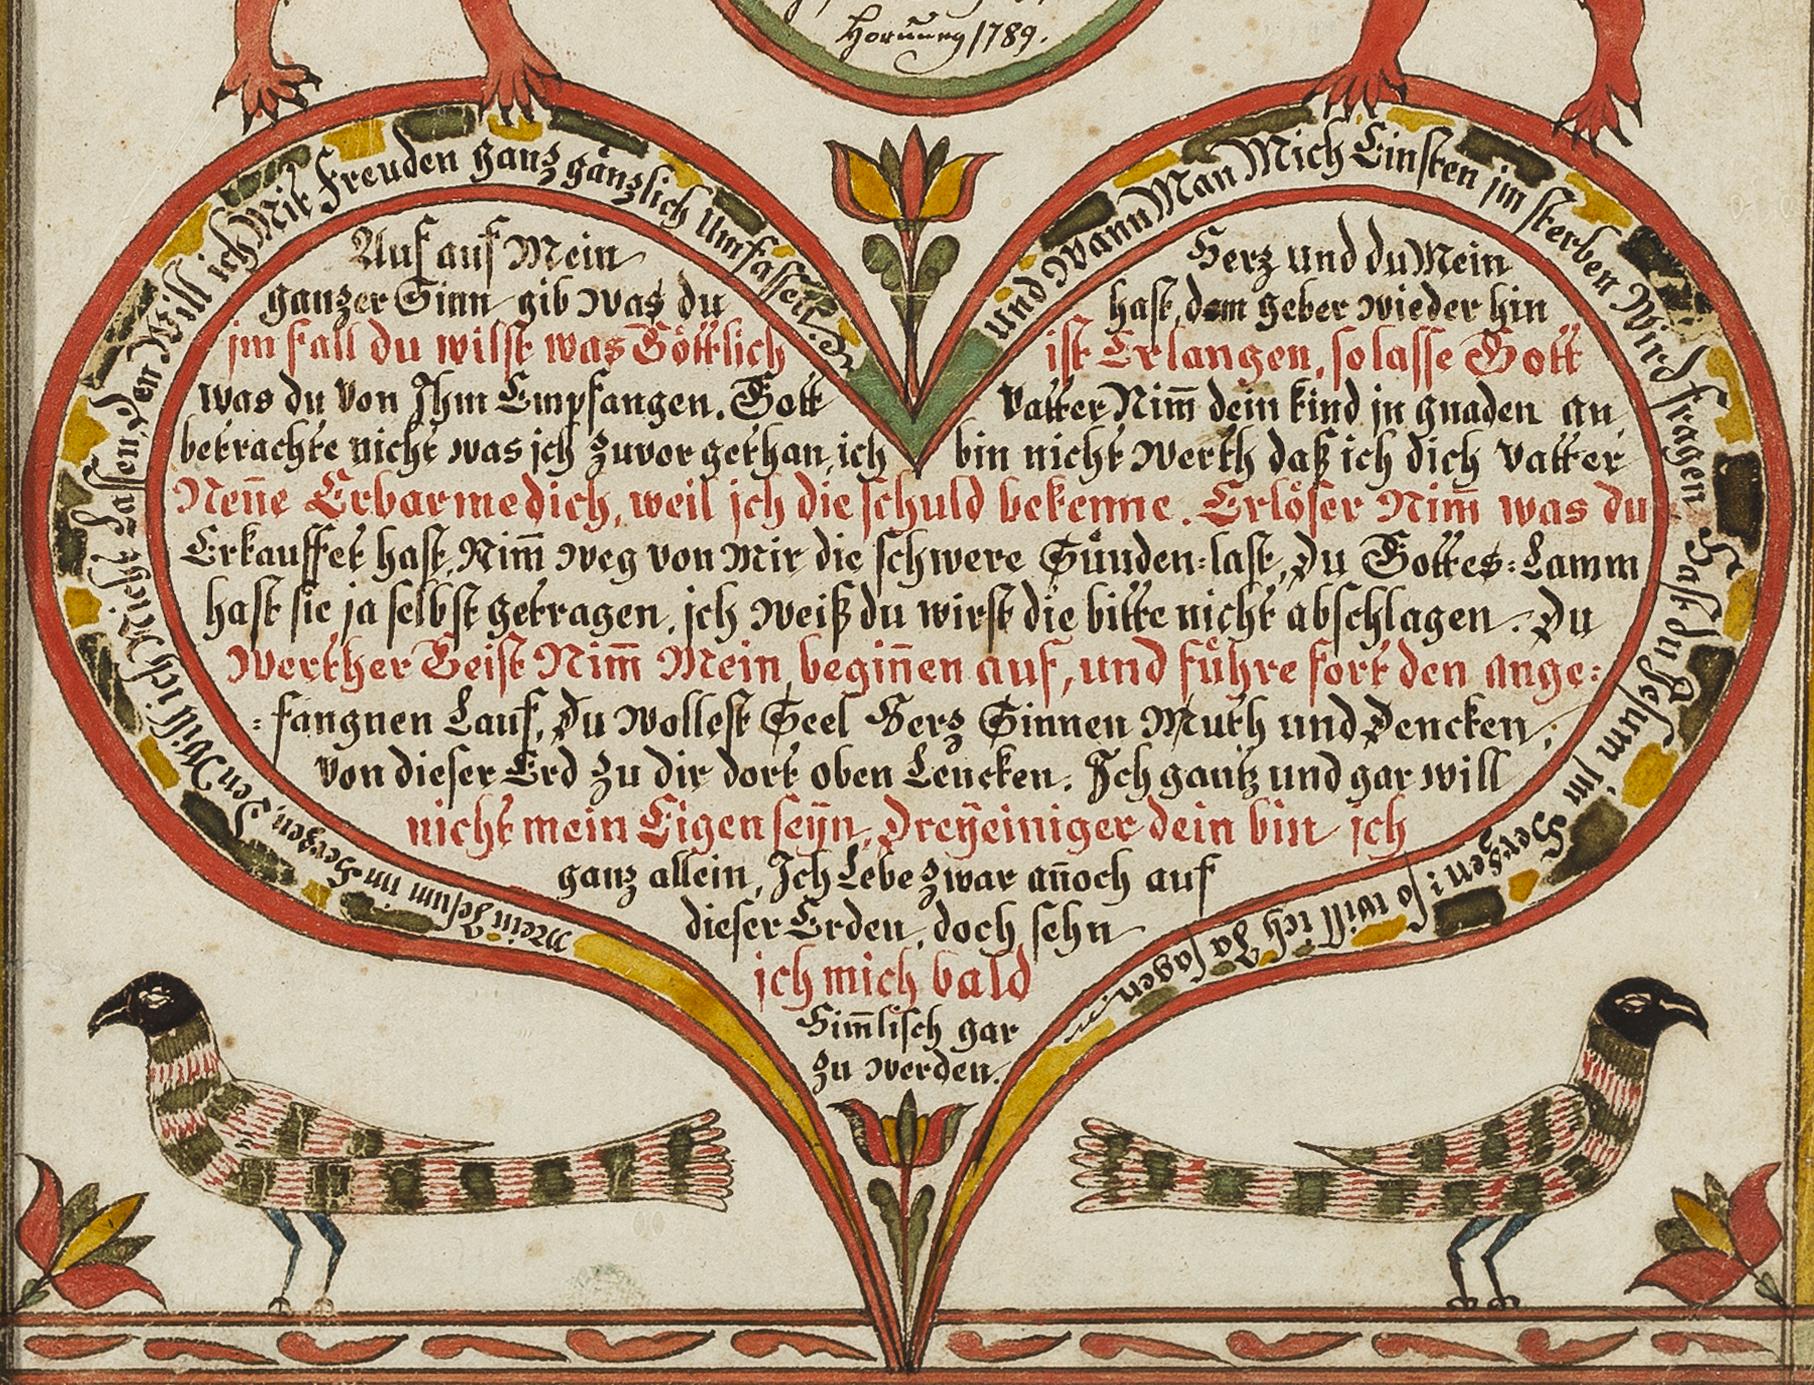 Hornung 1789.
und Wann Man Mich Einsten im sterben Wird fragen Hast du Jesum im Hergen: so will ich Ja sagen:
Mein Jesum im Hergen, Den Will ich Nicht Lassen, Den Will ich Mit Freuden ganz gänzlich Umfassen:
Auf auf Mein Herz und du Mein
ganzer Sinn gib was du hast, dem geber wieder hin
im fall du wilst was Göttlich ist Erlangen, so lasse Gott
was du von Ihm Empfangen. Gott Vatter Nim̄ dein kind in gnaden an,
betrachte nicht was ich zuvor gethan, ich bin nicht Werth daß ich dich Vatter
Nen̄e Erbarme dich, weil ich die schuld bekenne. Erlöser Nim̄ was du
Erkauffet hast, Nim̄ weg von Mir die schwere Sünden=last, Du Gottes=Lamm
hast sie ja selbst getragen, ich weiß du wirst die bitte nicht abschlagen. Du
Werther Geist Nim̄ Mein begin̄en auf, und führe fort den ange=
=fangnen Lauf, Du wollest Seel Herz Sinnen Muth und Dencken,
Von dieser Erd zu dir dort oben Lencken. Ich gantz und gar will
nicht mein Eigen seÿn, Dreÿeiniger dein bin ich
ganz allein, Ich Lebe zwar an̄och auf
dieser Erden, doch sehn
ich mich bald
Him̄lisch gar
zu werden.